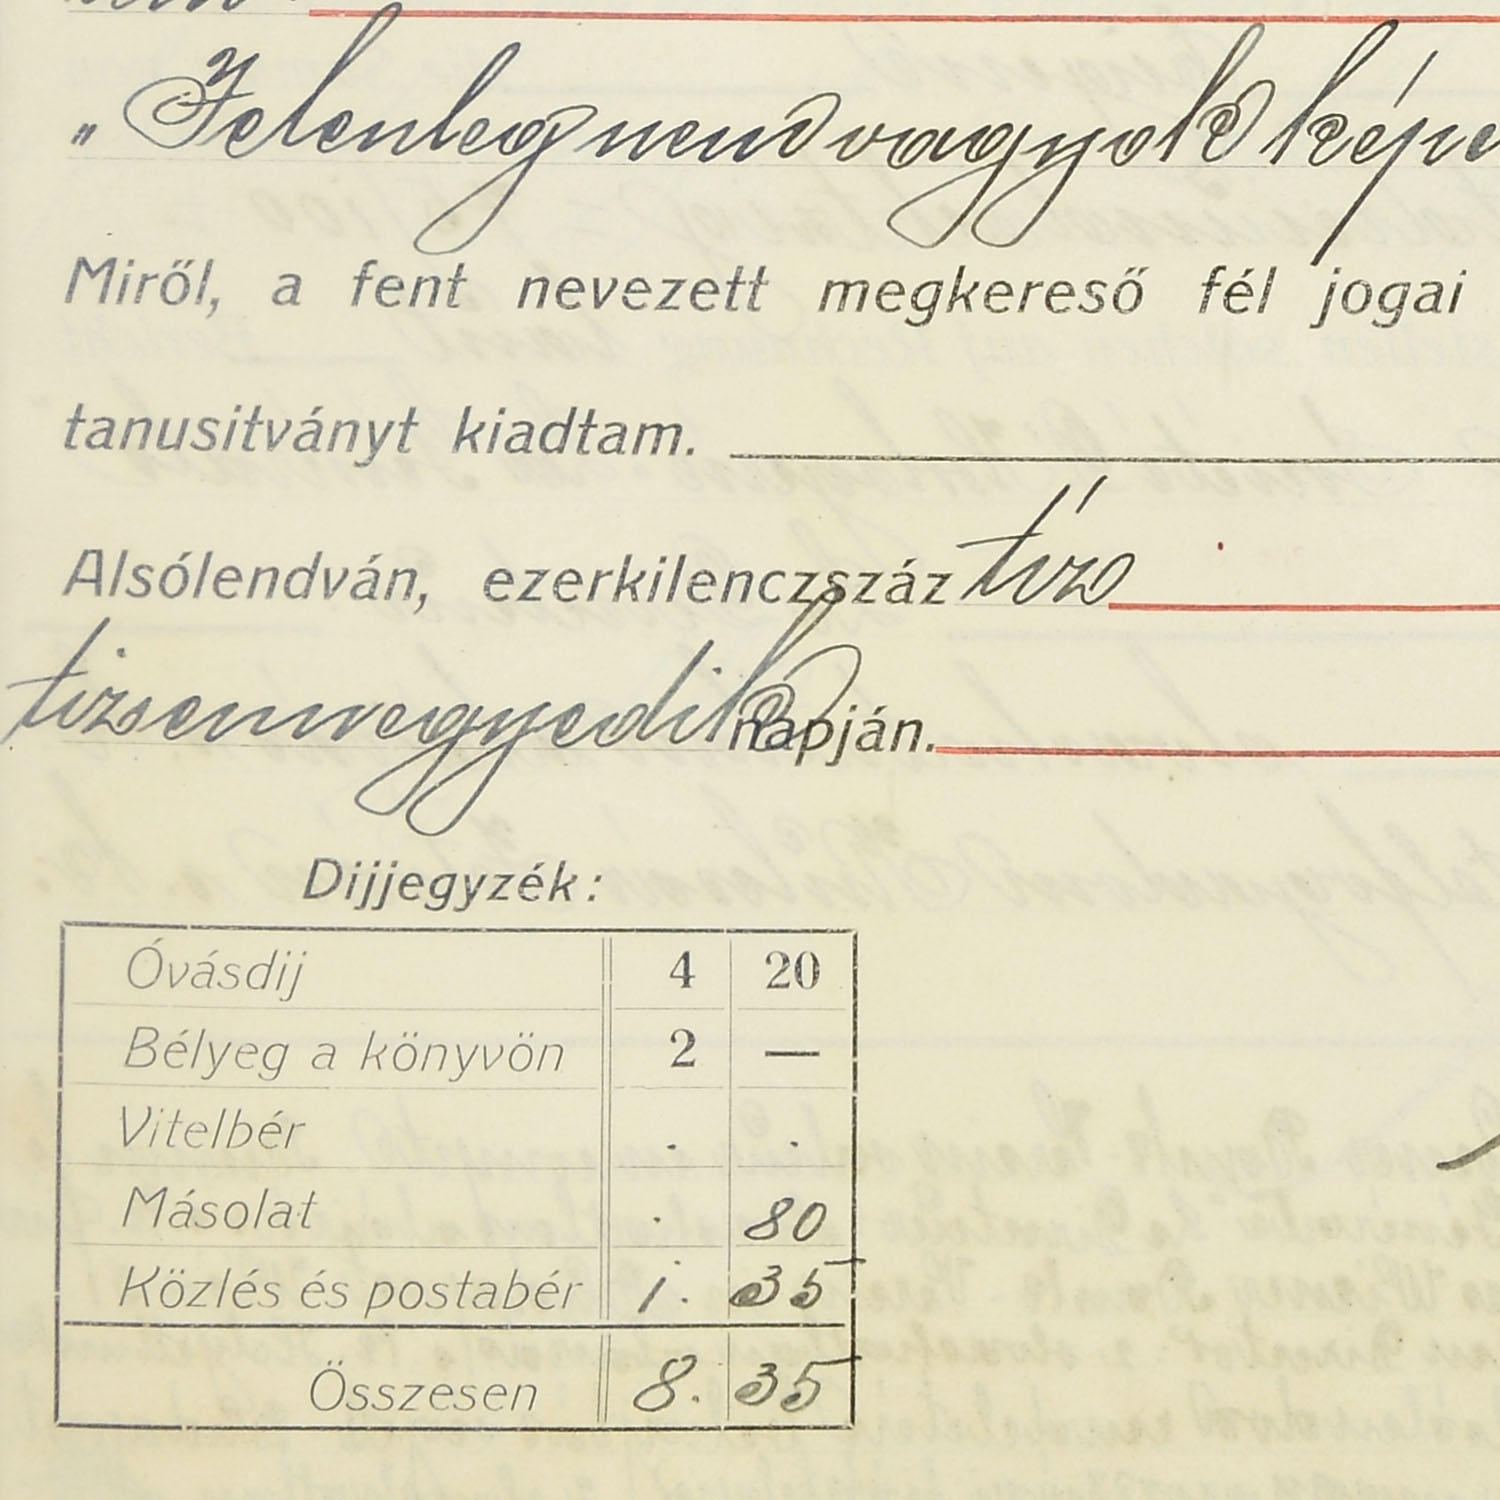 „Jelenleg nem vagyok képe
Miről, a fent nevezett megkereső fél jogai
tanusitványt kiadtam.
Alsólendván, ezerkilenczszáz tíz
tizsennegyedik napján.
Dijjegyzék:
Óvásdij 4 20
Bélyeg a könyvön 2 —
Vitelbér . .
Másolat . 80
Közlés és postabér 1. 35
Összesen 8. 35